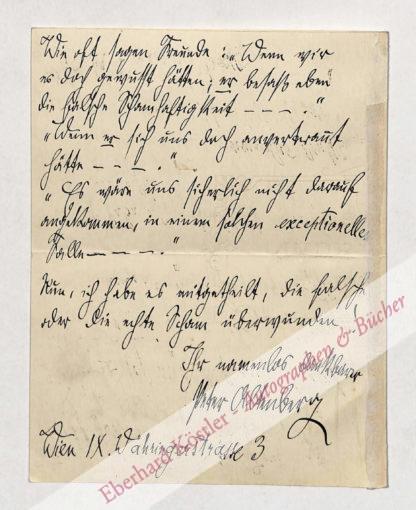 Wie oft sagen Freunde: „Wenn wir
es doch gewusst hätten; er besaß eben
die falsche Schamhaftigkeit – – – .“
„Wenn er sich uns doch anvertraut
hätte – – – .“
„Es wäre uns sicherlich nicht darauf
angekommen, in einem solchen exceptionellen
Falle – – – .“
Nun, ich habe es mitgetheilt, die falsche
oder die echte Scham überwunden!
Ihr namenlos dankbarer
Peter Altenberg
Wien IX. Währingerstrasse 3
Eberhard Köstler Autographen & Bücher